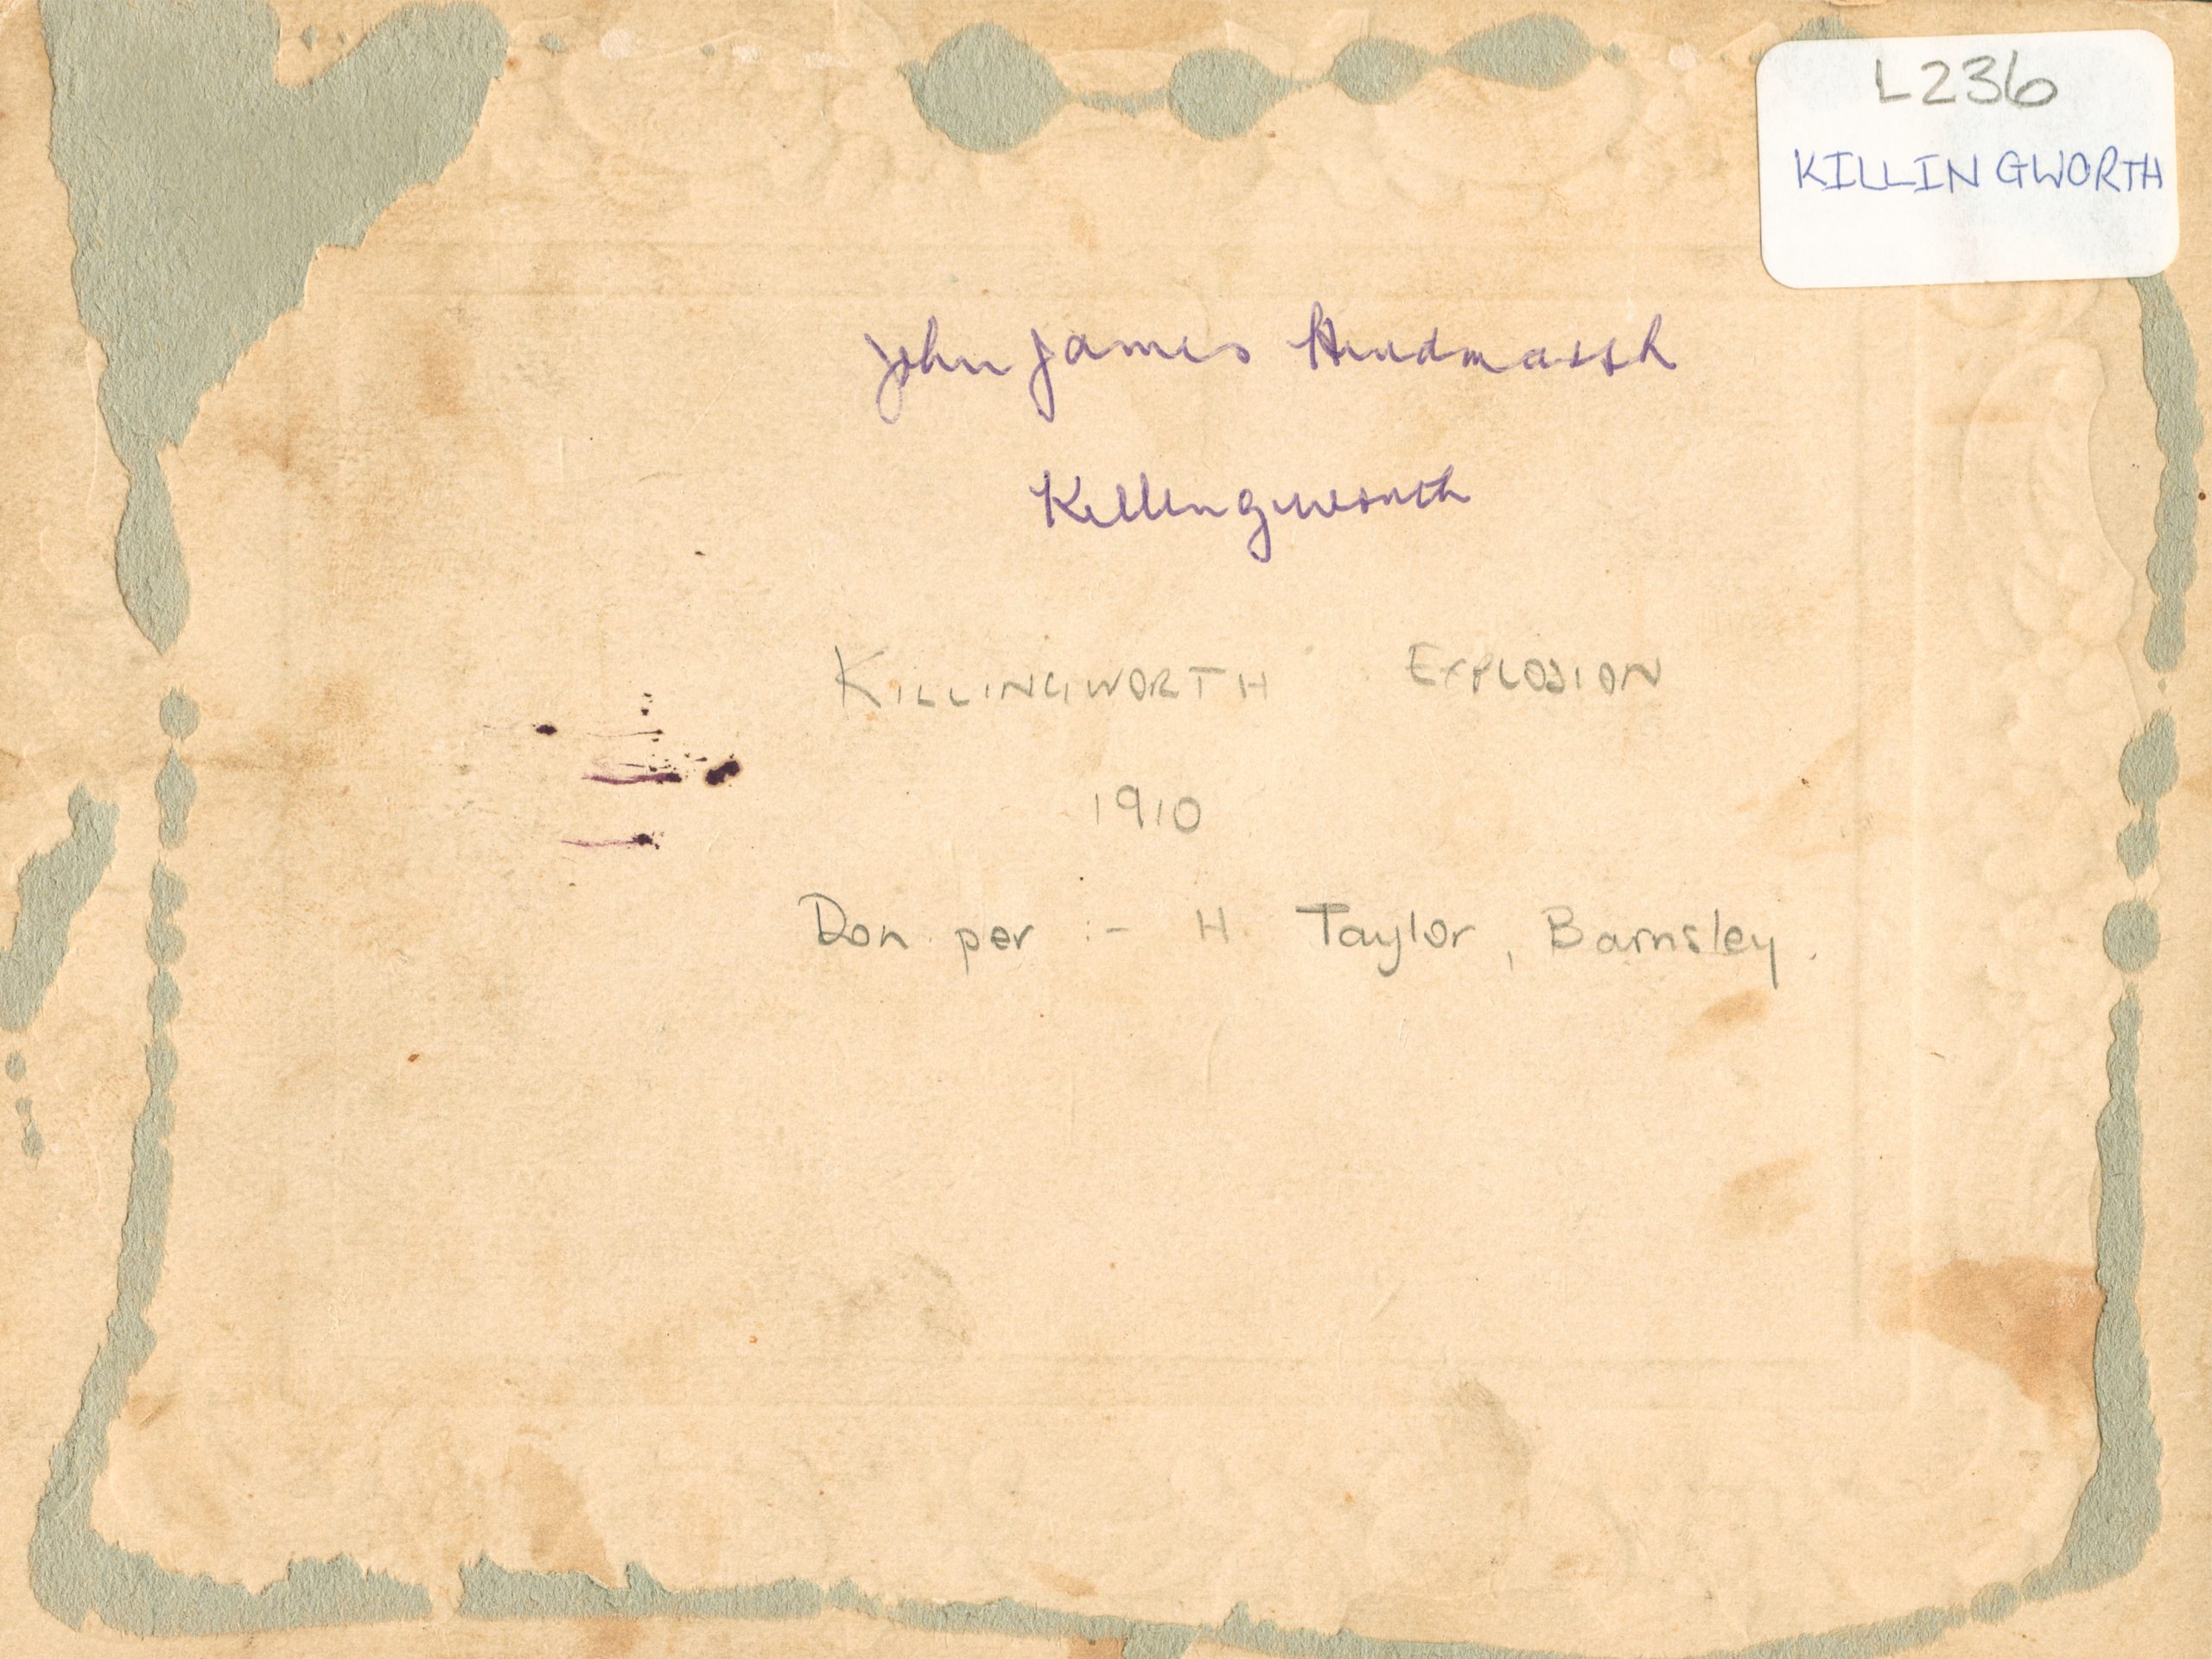 L236
KILLINGWORTH
John James Hindmarsh
Killingworth
KILLINGWORTH EXPLOSION
1910
Don per :- H. Taylor, Barnsley.